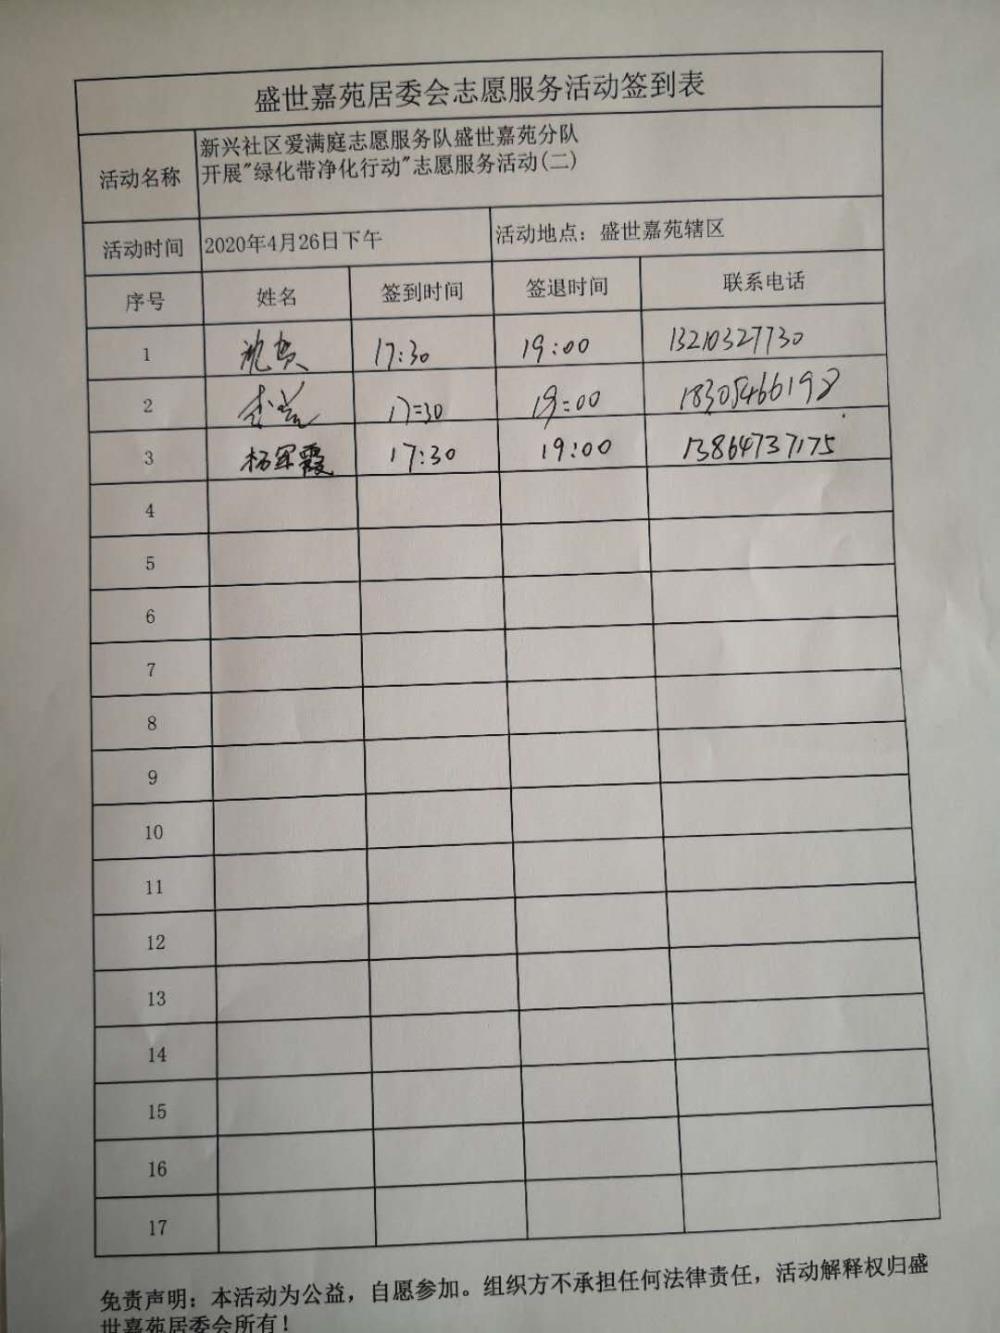 盛世嘉苑居委会志愿服务活动签到表
活动名称
新兴社区爱满庭志愿服务队盛世嘉苑分队
开展"绿化带净化行动"志愿服务活动(二)
活动时间 2020年4月26日下午 活动地点：盛世嘉苑辖区
序号 姓名 签到时间 签退时间 联系电话
1 17:30 19:00 13210327730
2 17:30 19:00 18305466198
3 杨军霞 17:30 19:00 13864737175
4
5
6
7
8
9
10
11
12
13
14
15
16
17
免责声明：本活动为公益，自愿参加。组织方不承担任何法律责任，活动解释权归盛
世嘉苑居委会所有！